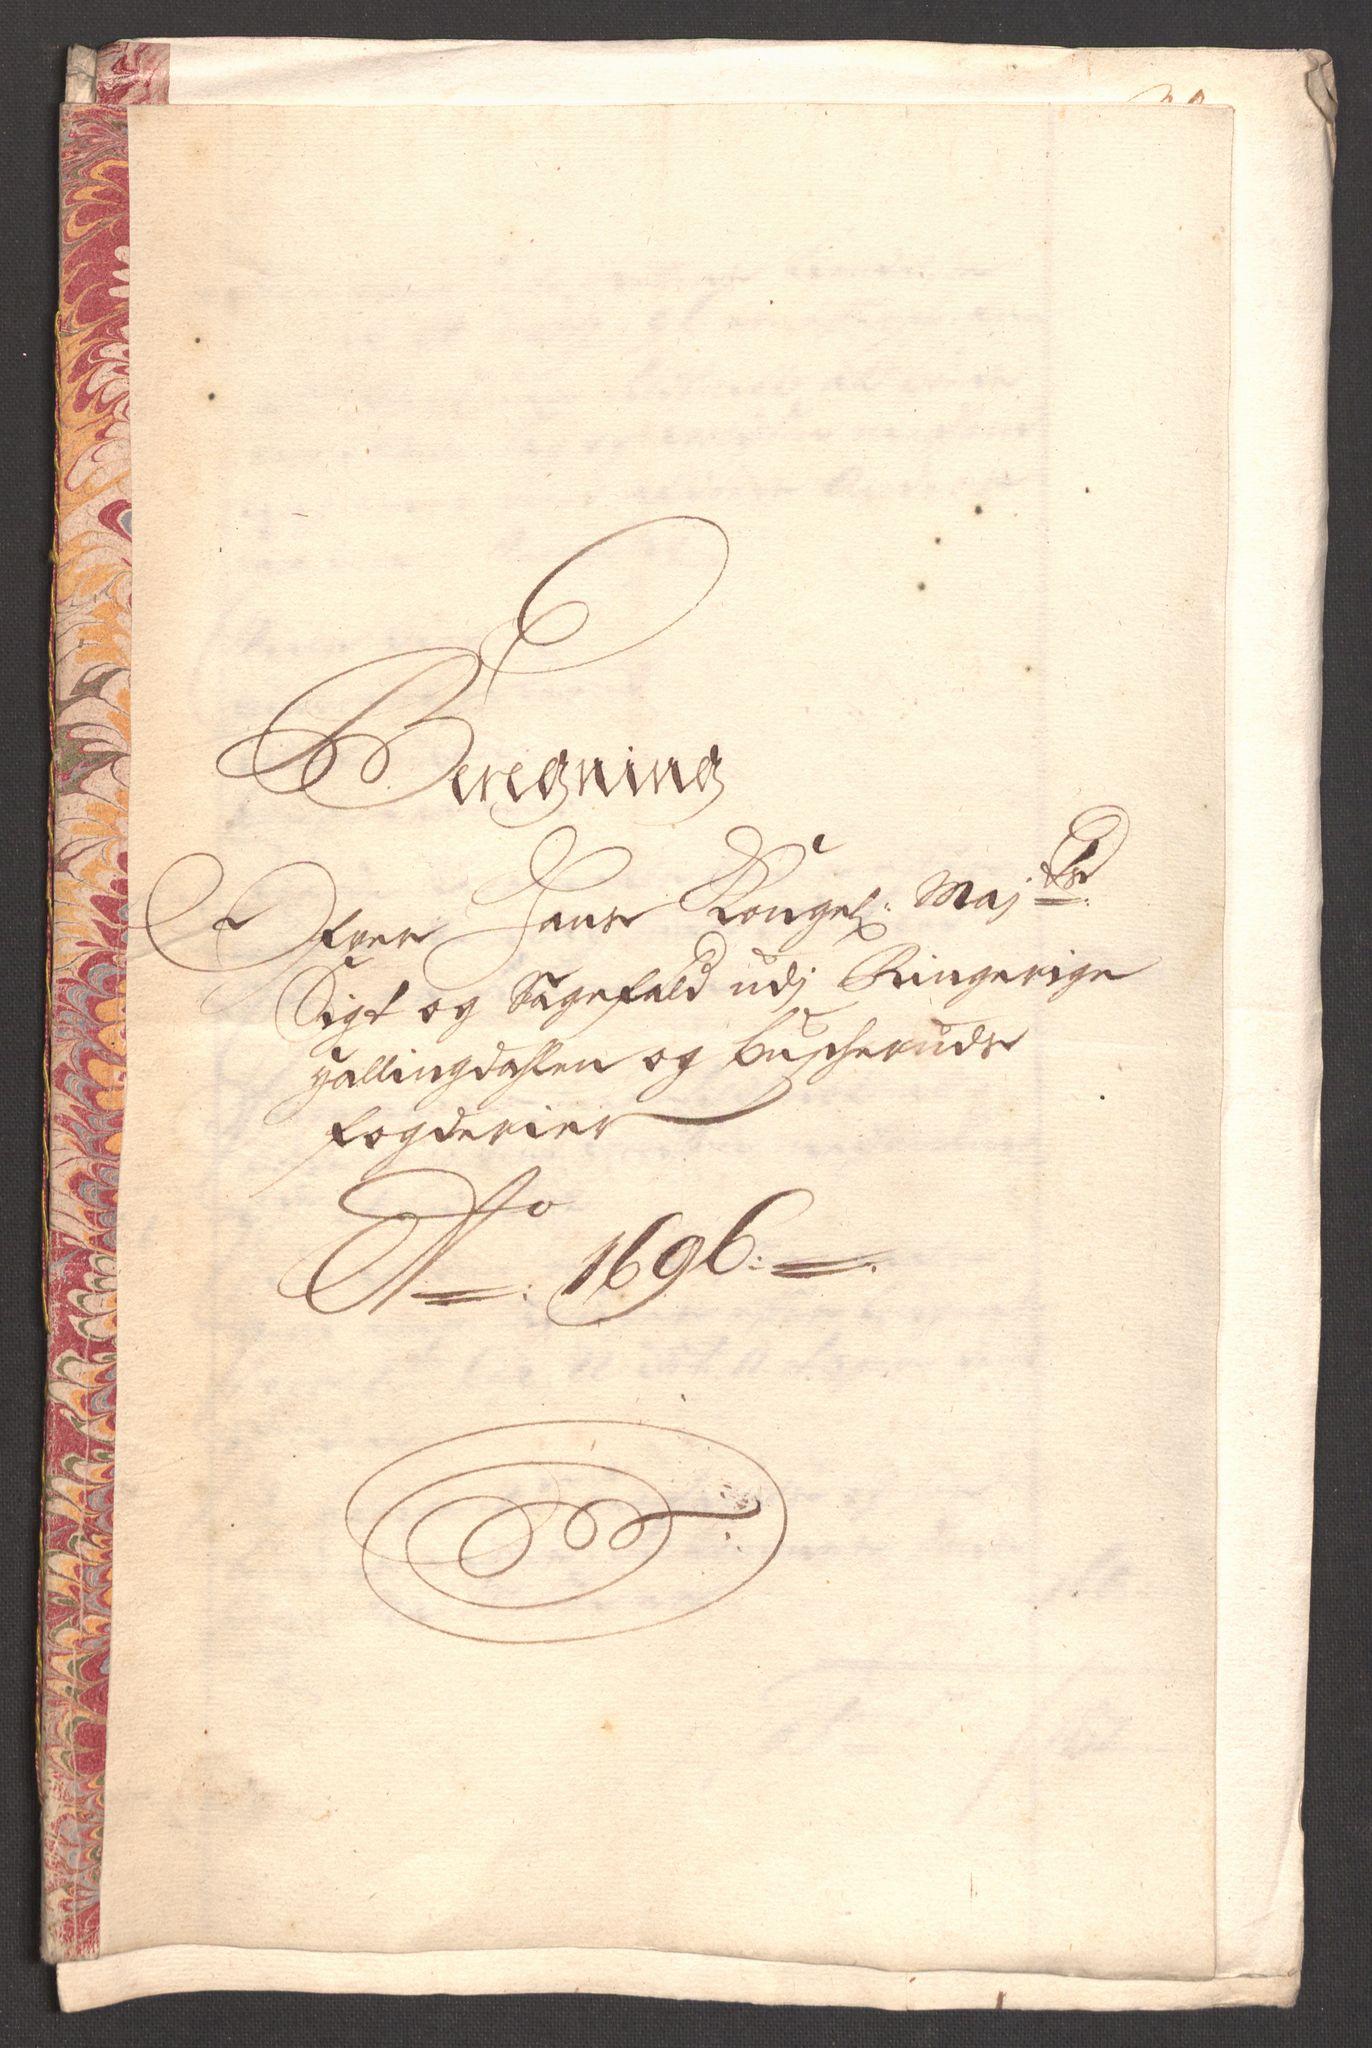 Beregning
Ofver Hans Kongel: Maj:ts
Sigt og Sagefald udj Ringerige
Hallingdahlen og Buscheruds
fogderier
Ao: 1696: